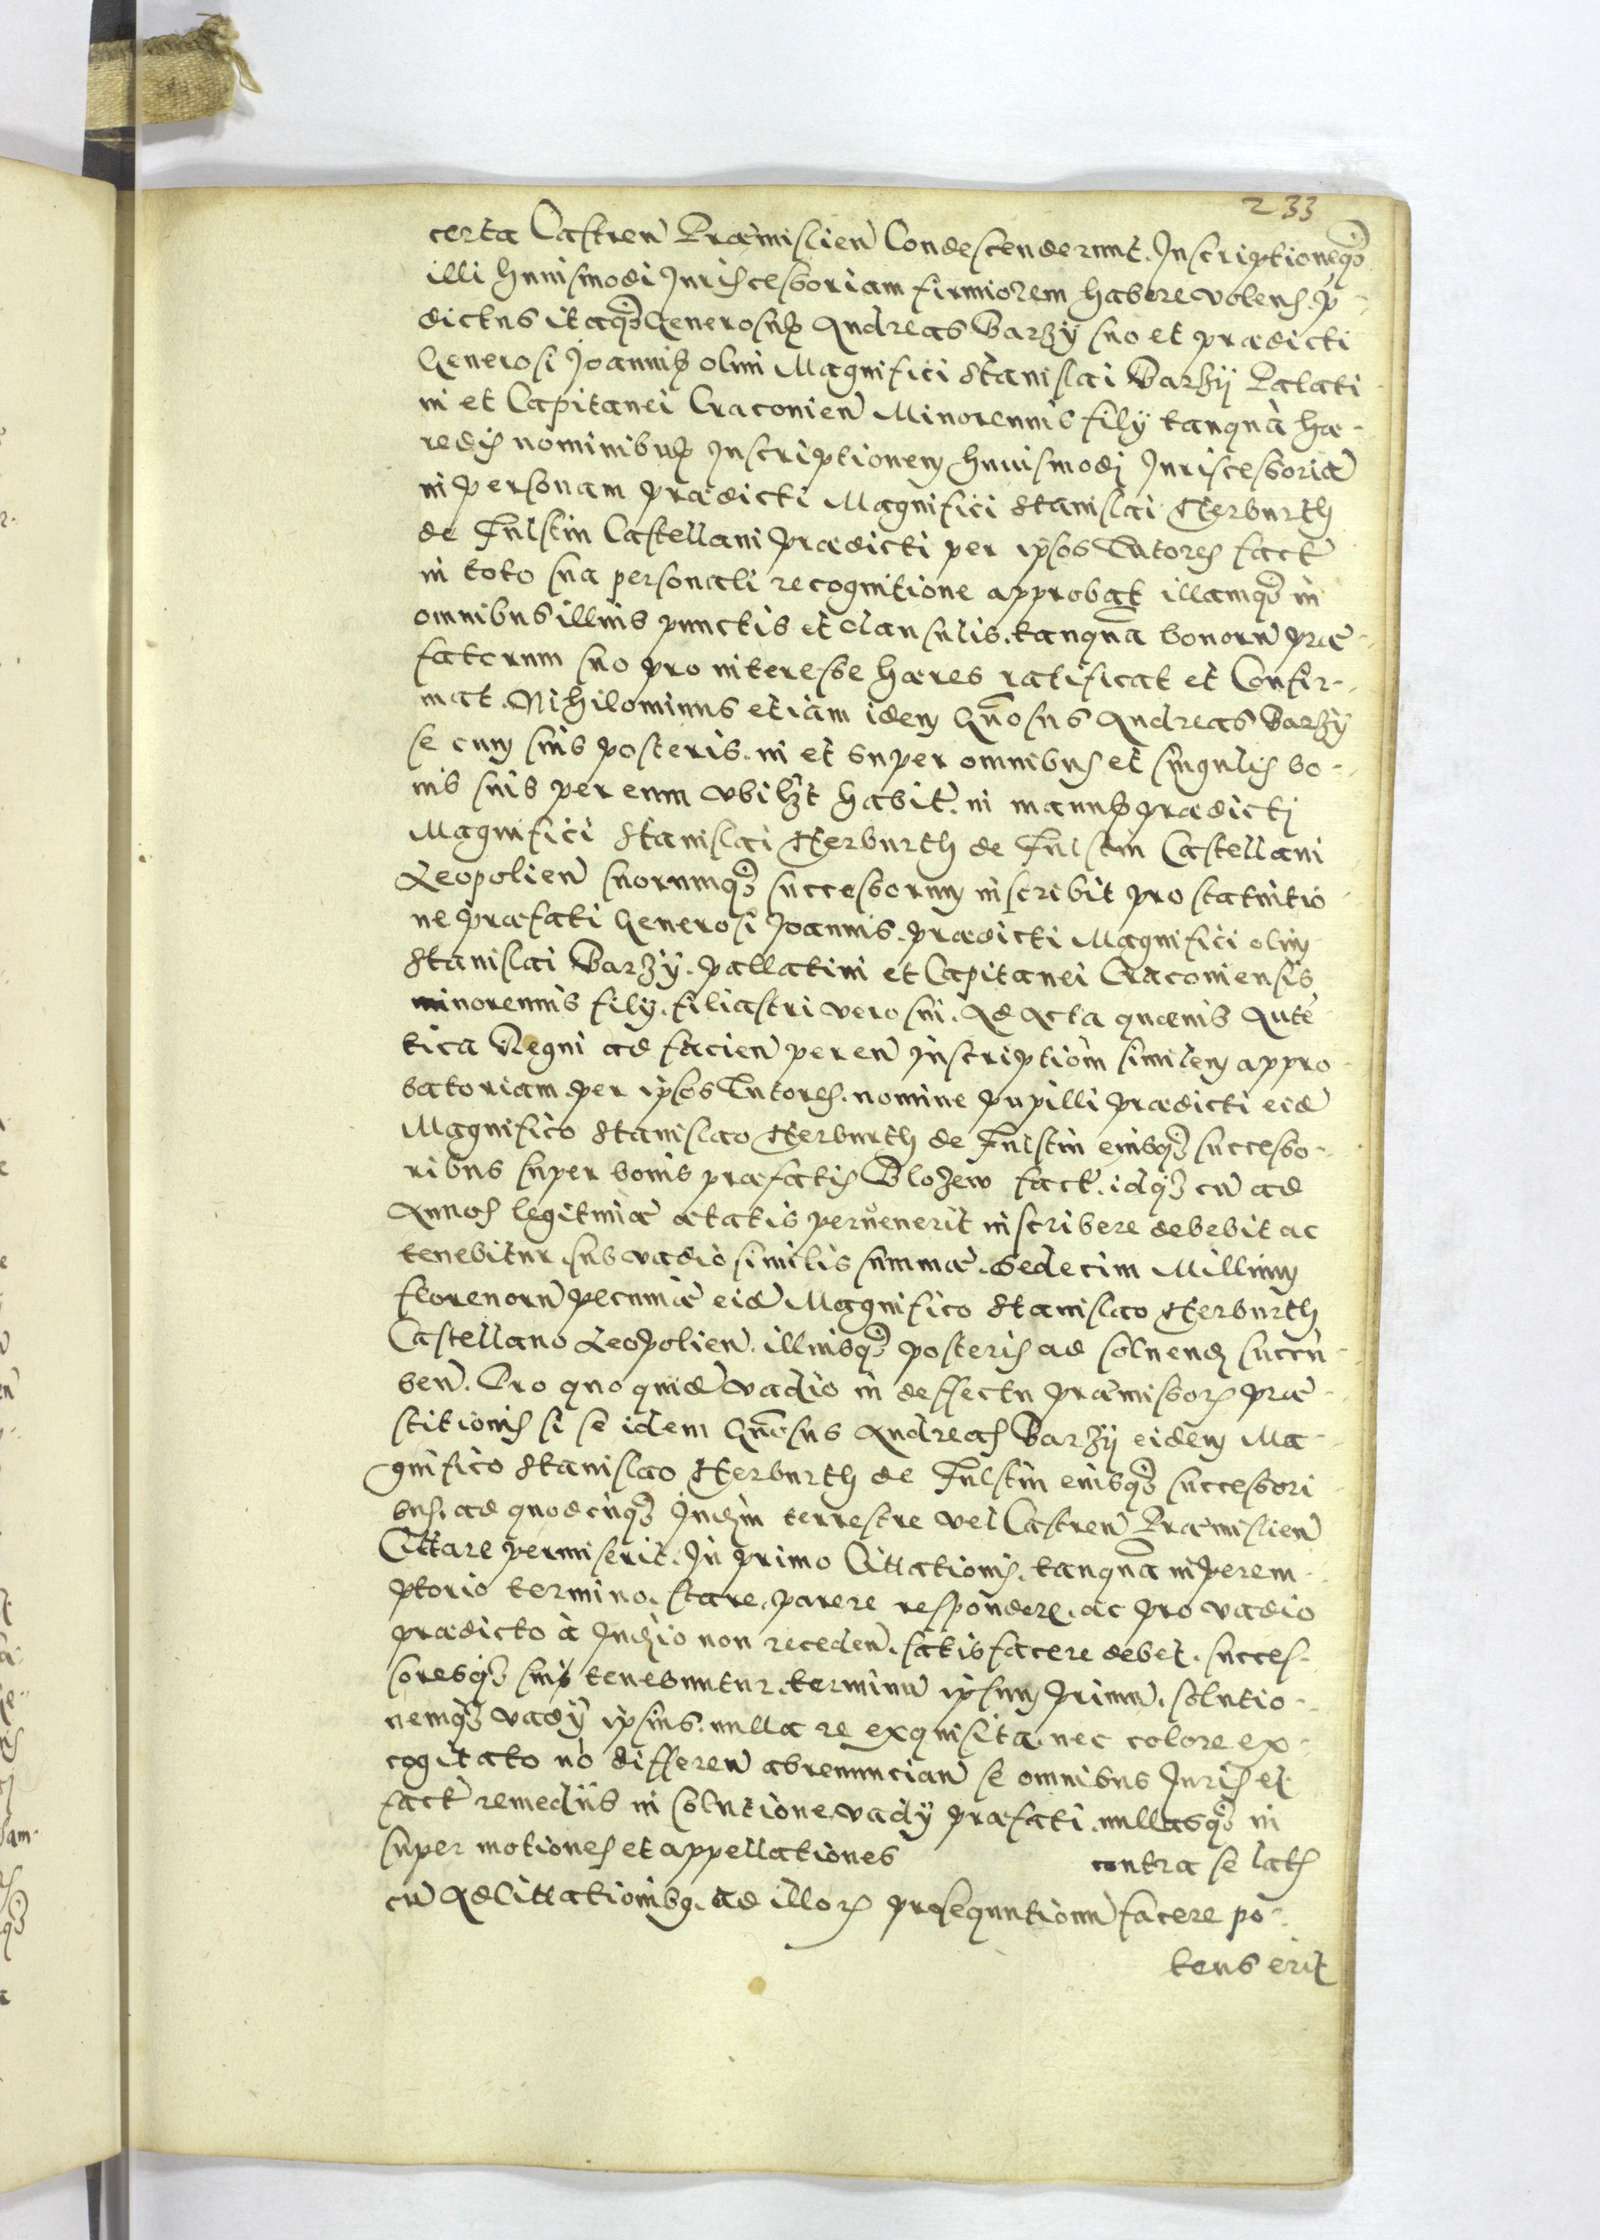 233
certa Castren̄ Præmislien̄ Condescenderunt. Inscriptionemq̃
illi huiusmodi Iuriscessoriam firmiorem habere volens. p̄-
dictus itaq̃ Generosus Andreas Barzy suo et prædicti
Generosi Joannis olim Magnifici Stanislai Barzy Palati-
ni et Capitanei Cracovien̄ Minorennis filÿ tanquā hæ-
redis nominibus Inscriptionem huiusmodi Iuriscessoriā
in personam prædicti Magnifici Stanislai Herburth
de Fulstin Castellani prædicti per ipsos Tutores fact̄
in toto sua personali recognitione approbat illamq̃ in
omnibus illius punctis et clausulis. tanquā bonorū præ-
fatorum suo pro interesse hæres ratificat et Confir-
mat. Nihilominus etiam idem Gn̄osus Andreas Barzÿ
se cum suis posteris. in et super omnibus et singulis bo-
nis suis per eum ubilzt habit̄. in manus prædicti
Magnifici Stanislai Herburth de Fulstin Castellani
Leopolien̄ suorumq̃ successorum inscribit pro statuitio-
ne præfati Generosi Joannis. prædicti Magnifici olim
Stanislai Barzÿ. pallatini et Capitanei Cracoviensis
minorennis filÿ. filiastri vero sui. Ad Acta quævis Autē-
tica Regni ad facien̄ per eū inscriptiōm similem appro-
batoriam. per ipsos Tutores. nomine pupilli prædicti eidē
Magnifico Stanislao Herburth de Fulstin eiusq̃ successo-
ribus super bonis præfatis Blozew fact̄. idq̃ cū ad
Annos legitimæ ætatis pervenerit inscribere debebit ac
tenebitur. sub vadio similis summæ. Sedecim Millium
florenorū pecuniæ eidē Magnifico Stanislao Herburth
Castellano Leopolien̄. illiusq̃ posteris ad solvend̄ succū-
ben̄. Pro quo quidē vadio in deffectu præmissorꝝ præ-
stitionis si se idem Gn̄osus Andreas Barzÿ eidem Ma-
gnifico Stanislao Herburth de Fulstin eiusq̃ successori-
bus. ad quodcūq̃ Iudīm terrestre vel Castren̄ Præmislien̄
Cittare permiserit. In primo Cittationis. tanquā in perem-
ptorio termino. stare, parere respondere. ac pro vadio
prædicto à Iudīo non receden̄. satisfacere debet. succes-
soresq̃ sui tenebuntur. terminū ipsum primū. solutio-
nemq̃ vadÿ ipsius. nulla re exquisita. nec colore ex-
cogitato nō differen̄ abrenuncian̄ se omnibus Iuris et
fact̄ remedÿs in solutione vadÿ præfati. nullasq̃ in
super motiones et appellationes contra se latis
cū Adcittationibꝫ. ad illorꝝ prosequutionū facere po-
tens erit